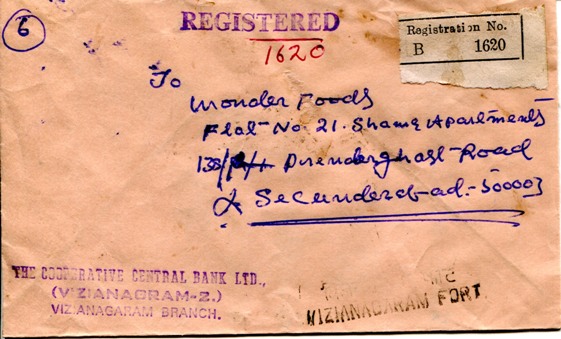 6
REGISTERED
1620
Registration No.
B 1620
To
Wonder Foods
Flat No. 21. Shama Apartments
Prenderghast Road
Secunderabad.- 500003
THE COOPERATIVE CENTRAL BANK LTD.,
(VIZIANAGRAM-2.)
VIZIANAGARAM BRANCH.
VIZIANAGARAM FORT